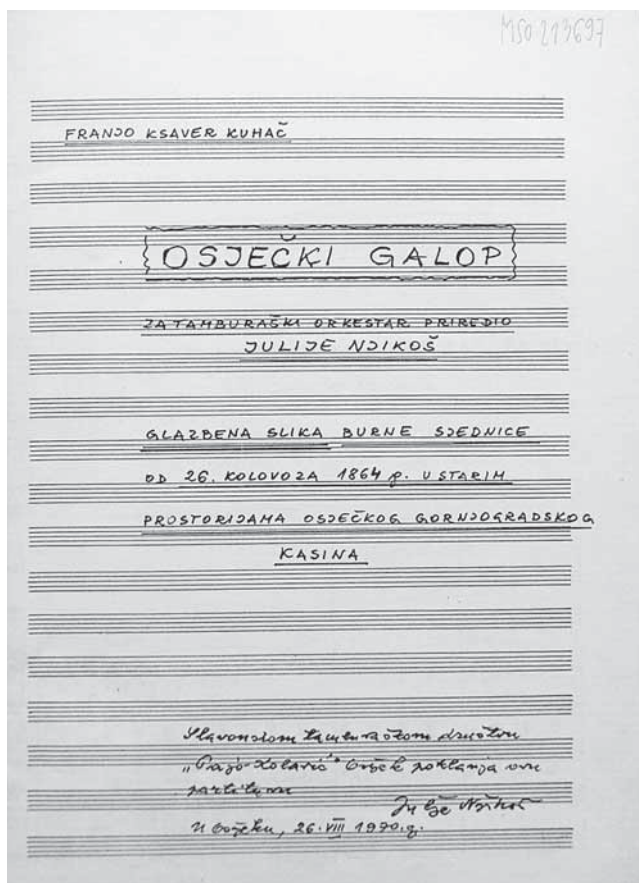 MSO 213697
FRANJO KSAVER KUHAČ
OSJEČKI GALOP
ZA TAMBURAŠKI ORKESTAR PRIREDIO
JULIJE NJIKOŠ
GLAZBENA SLIKA BURNE SJEDNICE
OD 26. KOLOVOZA 1864 g. U STARIM
PROSTORIJAMA OSJEČKOG GORNJOGRADSKOG
KASINA
Slavonskom tamburaškom društvu
„Pajo Kolarić“ Osijek poklanja ovu
partituru
Julije Njikoš
U Osijeku, 26. VIII 1990. g.